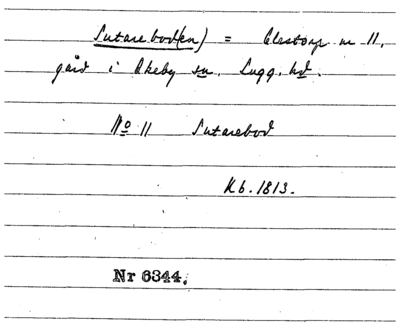 Sutarebod(en) = Clestorp nr 11,
gård i Åkeby sn, Lugg. hd.
No 11 Sutarebod
Kb. 1813.
Nr 6344.